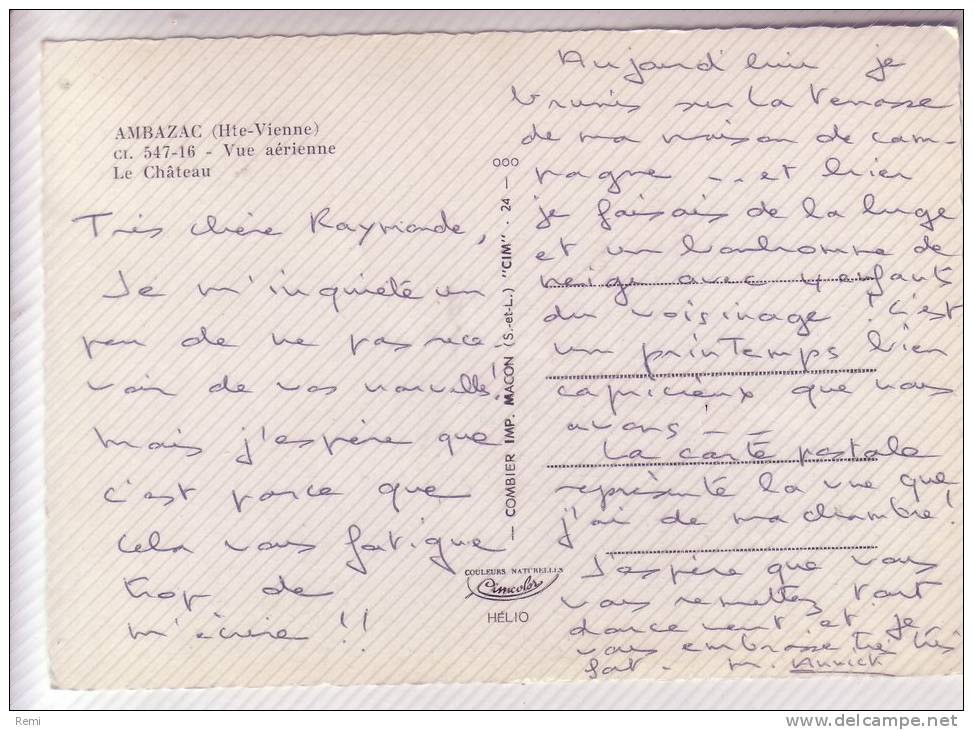 AMBAZAC (Hte-Vienne)
CI. 547-16 - Vue aérienne
Le Château
Très chère Raymonde,
Je m'inquiète un
peu de ne pas rece-
voir de vos nouvelles!
mais j'espère que
c'est parce que
cela vous fatigue
trop de
m'écrire !!
COMBIER IMP. MACON (S.-et-L.) "CIM" . 24 — 000
COULEURS NATURELLES
Cimcolor
HÉLIO
Aujourd'hui je
brunis sur la terrasse
de ma maison de cam-
pagne -..et hier
je faisais de la luge
et un bonhomme de
neige avec 4 enfants
du voisinage ! C'est
un printemps bien
capricieux que nous
avons - -
La carte postale
représente la vue que
j'ai de ma chambre!
J'espère que vous
vous remettez tout
doucement et je
vous embrasse très très
fort - M. Annick
Remi
http://www.delcampe.net